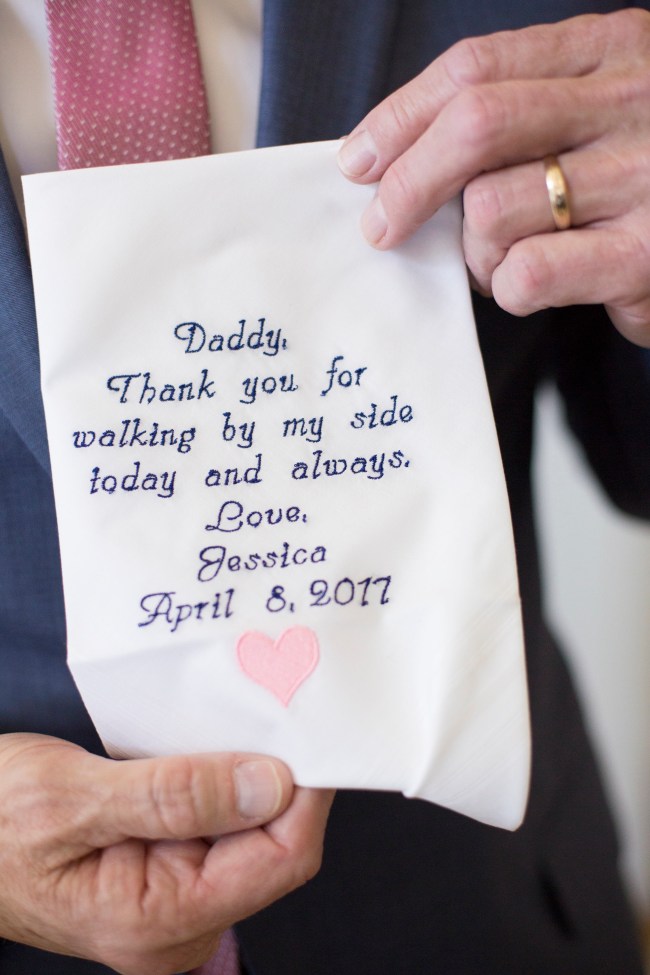 Daddy,
Thank you for
walking by my side
today and always.
Love,
Jessica
April 8, 2017